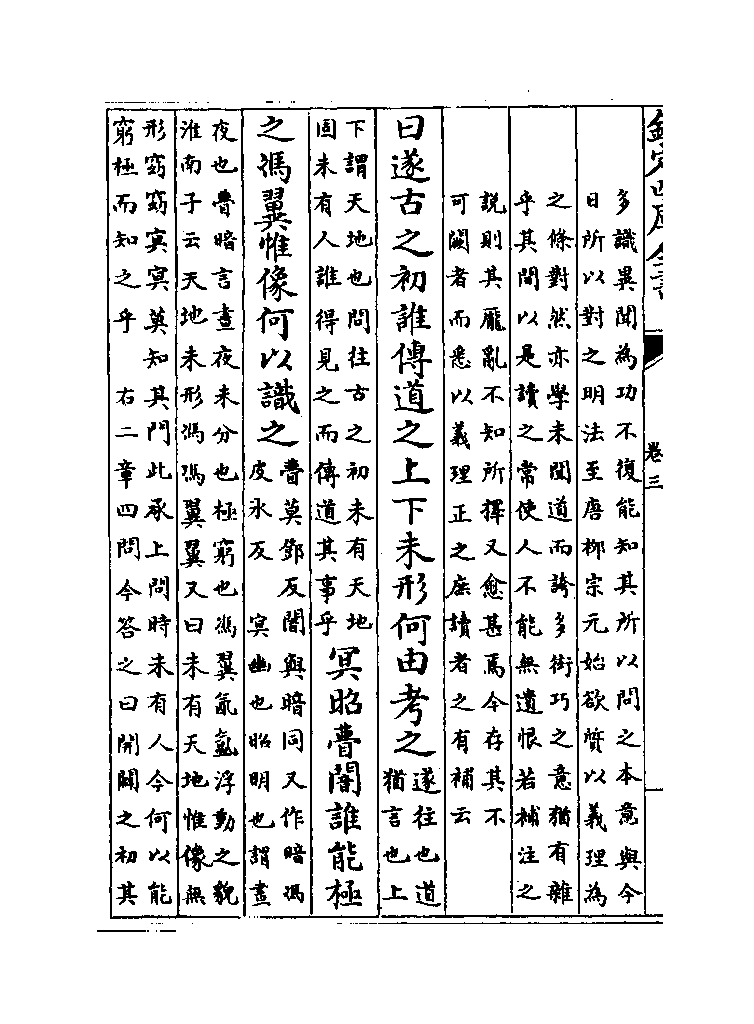 欽定四庫全書 卷三
多識異聞為功不復能知其所以問之本意與今
日所以對之明法至唐柳宗元始欲質以義理為
之條對然亦學未聞道而誇多衒巧之意猶有雜
乎其間以是讀之常使人不能無遺恨若補注之
說則其厖亂不知所擇又愈甚焉今存其不
可闕者而悉以義理正之庶讀者之有補云
曰遂古之初誰傳道之上下未形何由考之
遂往也道
猶言也上
下謂天地也問往古之初未有天地
固未有人誰得見之而傳道其事乎
冥昭瞢闇誰能極
之馮翼惟像何以識之
瞢莫鄧反闇與暗同又作暗馮
皮氷反　冥幽也昭明也謂晝
夜也瞢暗言晝夜未分也極窮也馮翼氤氲浮動之貌
淮南子云天地未形馮馮翼翼又曰未有天地惟像無
形窈窈冥冥莫知其門此承上問時未有人今何以能
窮極而知之乎　右二章四問今答之曰開闢之初其